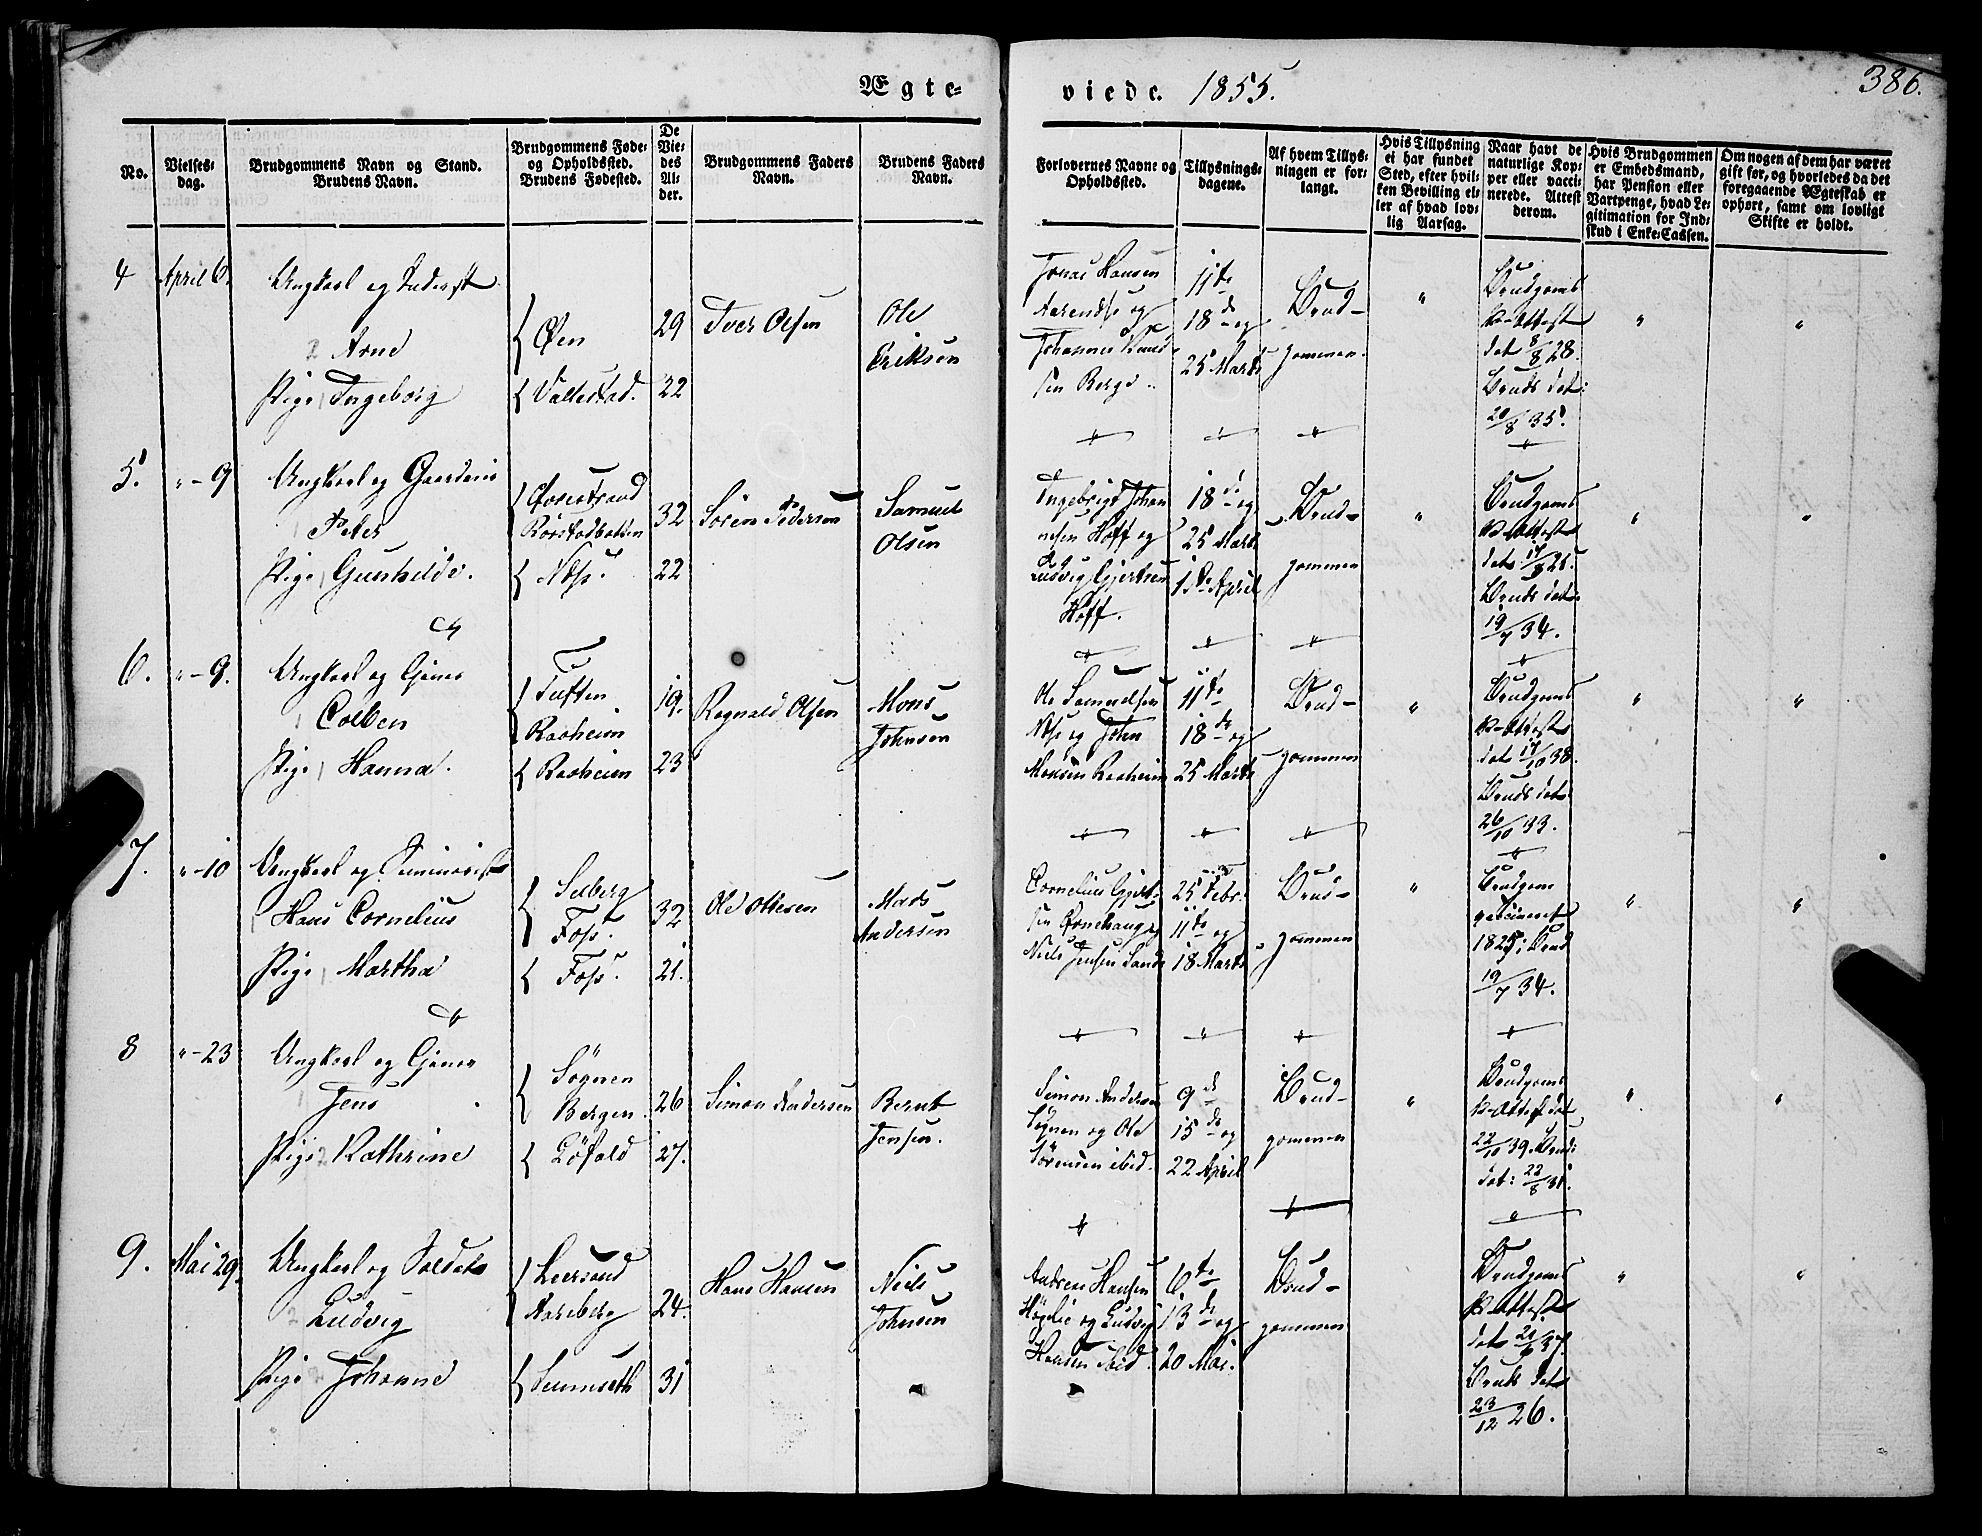 Ægte-
viede. 1855.
386.
No.
Vielses-
dag.
Brudgommens Navn og Stand.
Brudens Navn.
Brudgommens Føde-
og Opholdssted.
Brudens Fødested.
De
Vie-
des
Al-
der.
Brudgommens Faders
Navn.
Brudens Faders
Navn.
Forlovernes Navne og
Opholdssted.
Tillysnings-
dagene.
Af hvem Tillys-
ningen er for-
langt.
Hvis Tillysning
ei har fundet
Sted, efter hvil-
ken Bevilling el-
ler af hvad lov-
lig Aarsag.
Naar havt de
naturlige Kop-
per eller vacci-
nerede. Attest
derom.
Hvis Brudgommen
er Embedsmand,
har Pension eller
Vartpenge, hvad Le-
gitimation for Ind-
skud i Enke-Cassen.
Om nogen af dem har været
gift før, og hvorledes da det
foregaaende Ægteskab er
ophørt, samt om lovligt
Skifte er holdt.
4 April 6.
Ungkarl og Inderst
Arne
Pige Ingeborg
Øen
Vallestad.
29
22
Iver Olsen
Ole
Eriksen
Jonas Hansen
Aarendse og
Johannes Knud-
sen Berge.
11te
18de og
25 Marts
Brud-
gommen.
"
Brudgoms
K-Attest
dat 8/8 28.
Bruds dat:
20/8 35.
"
"
5. "-9
Ungkarl og
Peter
Pige Gunhilde.
Næss.
32
22
Sören Pedersen
Samuel
Olsen
Ingebrigt Johan
nesen Hoff og
Ludvig Gjertsen
Hoff.
18de og
25 Marts
1ste April
Brud-
gommen
"
Brudgoms
K-Attest
Bruds dat:
19/7 34.
"
"
6. "-9.
Ungkarl og
Colben
Pige Hanna.
Tuften
Raaheim
Raaheim
19.
23
Ragnald Olsen
Mons
Johnsen
Ole Samuelsen
Næss og John
Monsen Raaheim
11te
18de og
25 Marts
Brud-
gommen
"
Brudgoms
K-Attest
dat 17/10 38.
Bruds dat
26/10 33.
"
"
7. "-10
Ungkarl og Seminarist
Hans Cornelius
Pige Martha
Selberg
Foss.
Foss.
32
21.
Ole Ottesen
Mads
Andersen
Cornelius Gjert-
sen Ørnehaug
Niels Jensen Sande
25 Febr.
11te og
18 Marts
Brud-
gommen
"
Brudgom
vaccineret
1825; Brud
19/7 34.
"
"
8 "-23
Ungkarl og
Jens
Pige Kathrine
Sögnen
Bergen.
Löfald
26
27.
Simon Andersen
Bernt
Jensen.
Simon Andersen
Sögnen og Ole
Sörensen ibid.
9de
15de og
22 April
Brud-
gommen
"
Brudgoms
K-Attest dat
22/10 39. Bruds
dat: 22/8 31.
"
"
9. Mai 29.
Ungkarl og Soldat
Ludvig
Pige Johanne
Leersund
Aareberg
24.
31
Hans Hansen
Niels
Johnsen
Andreas Hansen
og Ludvig
Hansen ibid.
6te
13de og
20 Mai.
Brud-
gommen
Brudgoms
K-Attest
Bruds dat
23/12 26.
"
"